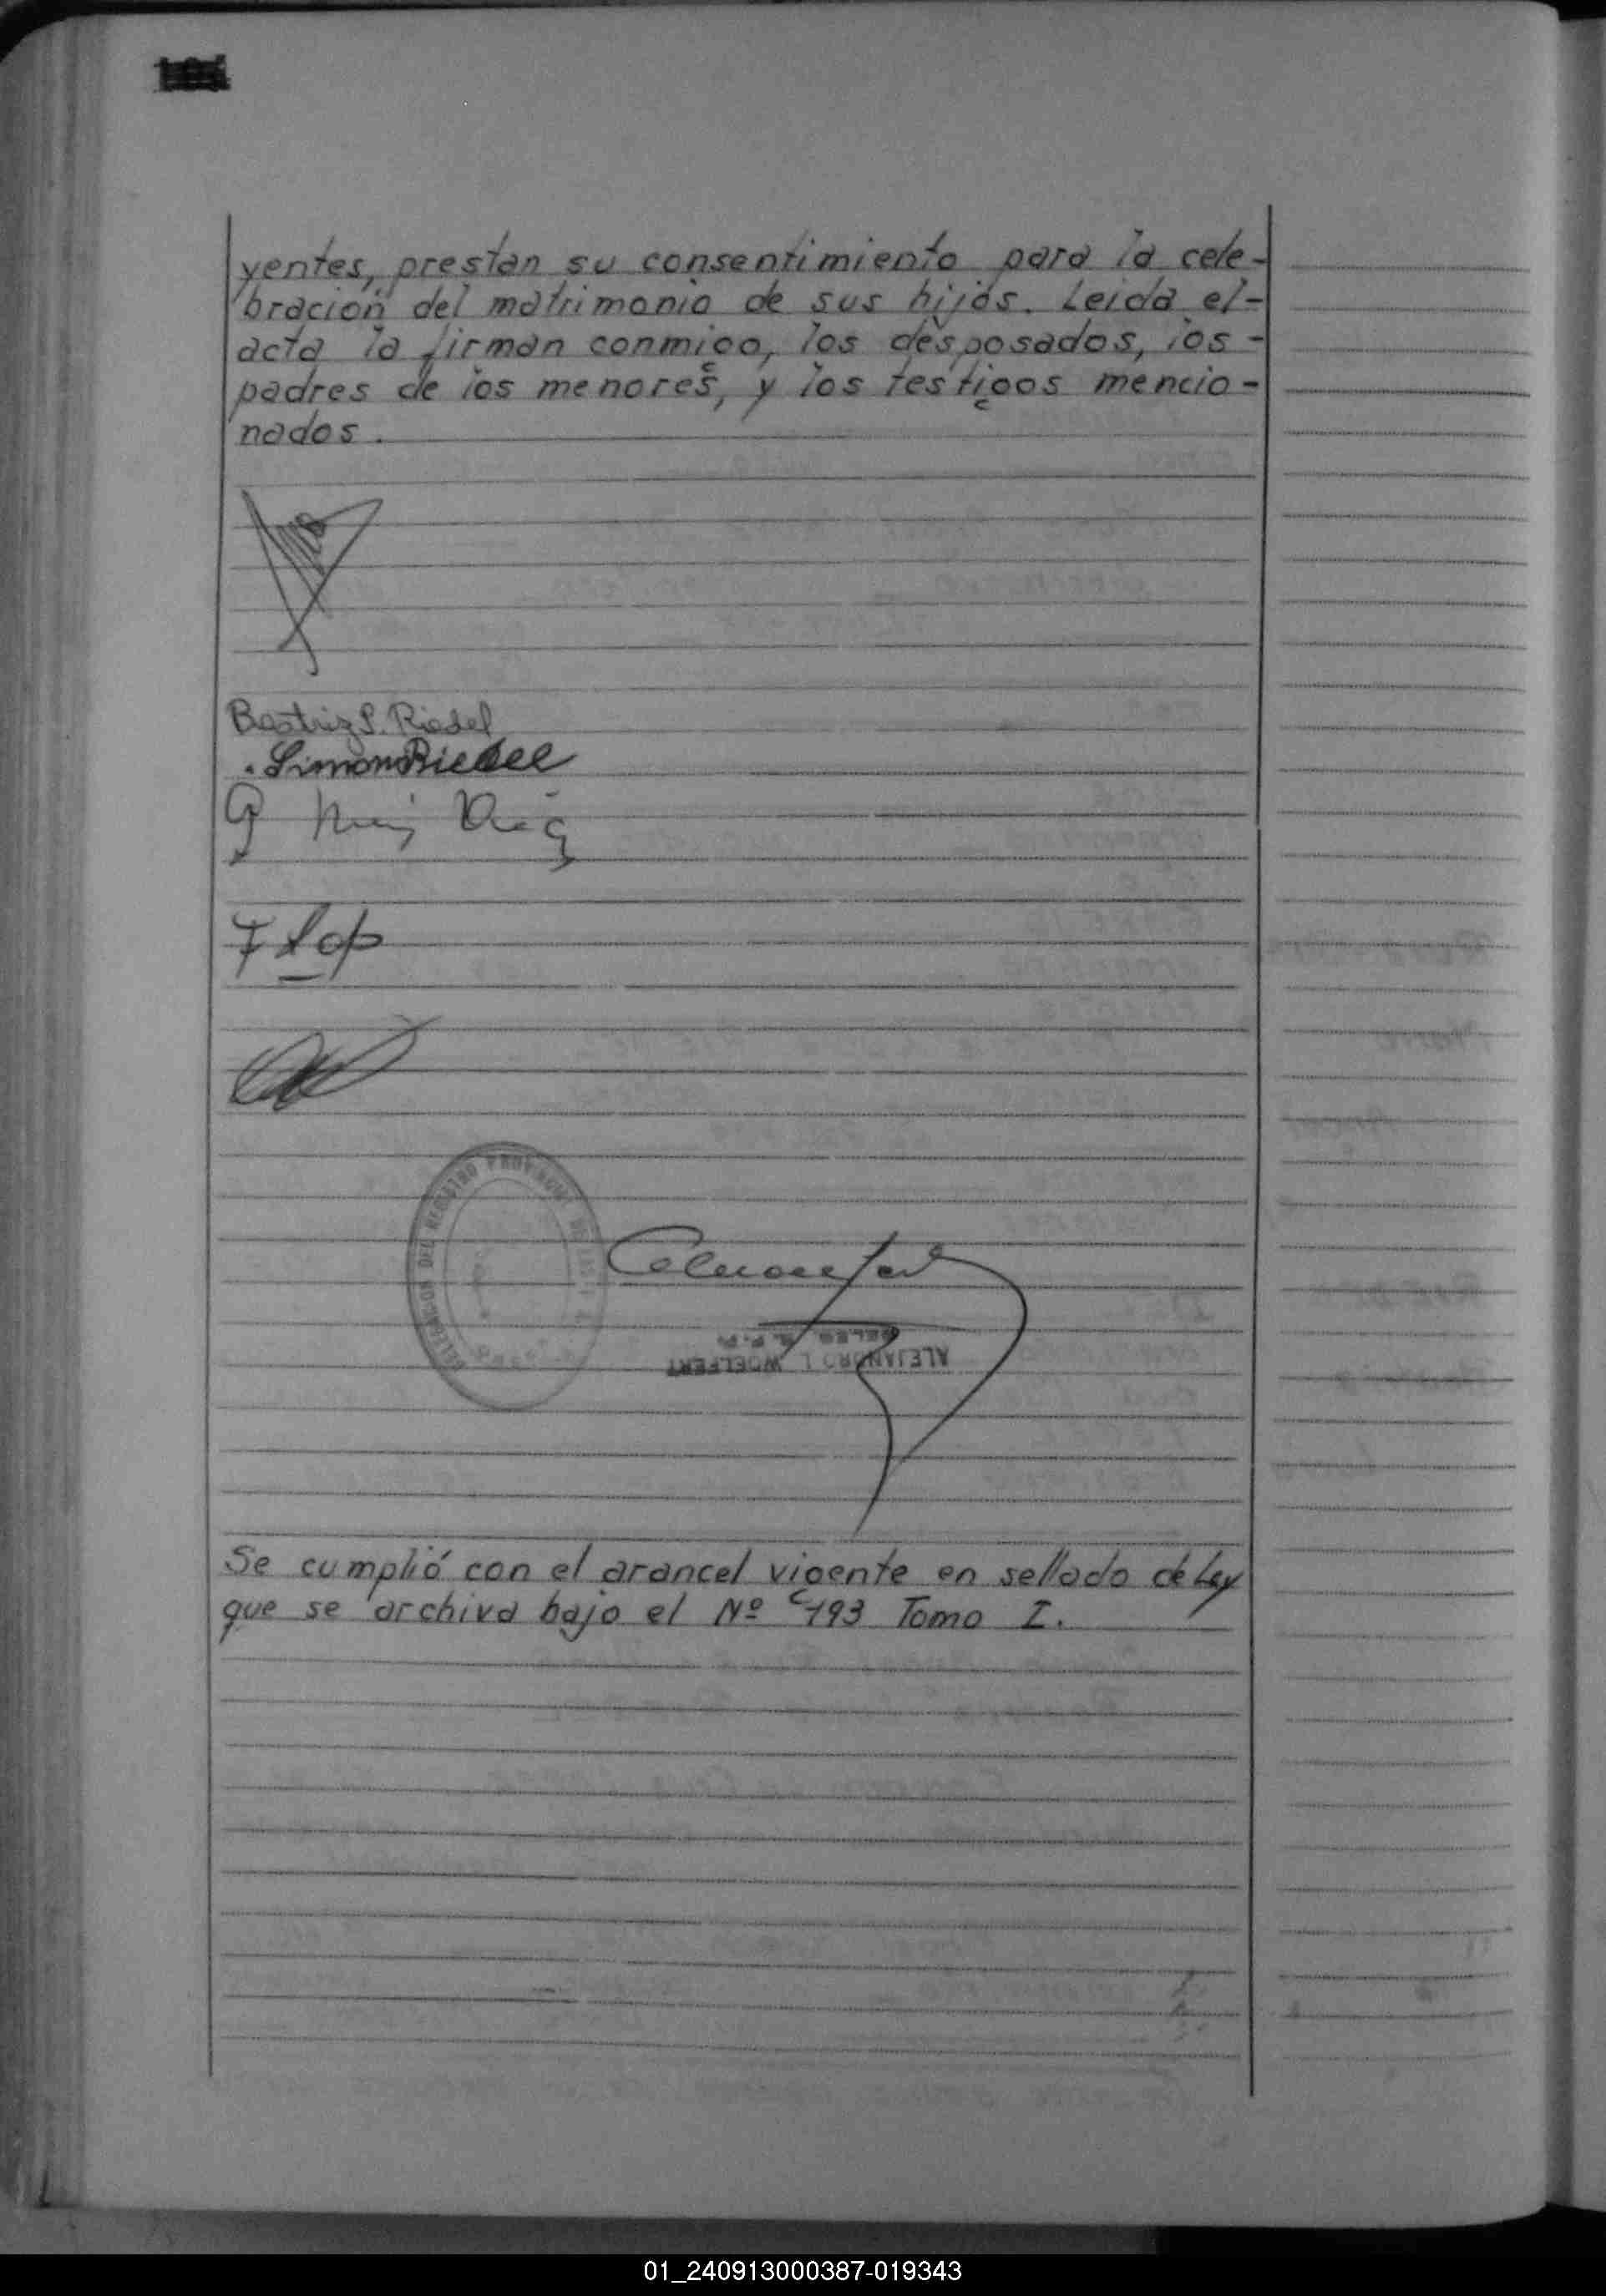 yentes, prestan su consentimiento para la cele-
bración del matrimonio de sus hijos. Leida el-
acta la firman conmigo, los desposados, los -
padres de los menores, y los testigos mencio-
nados.
Beatriz S. Riedel
Simon Riedel
DELEGACION DEL REGISTRO PROVINCIAL DE LAS
ALEJANDRO L. WOELFERT
DELEG. R. P. P.
Se cumplió con el arancel vigente en sellado de Ley
que se archiva bajo el Nº 193 Tomo I.
01_240913000387-019343